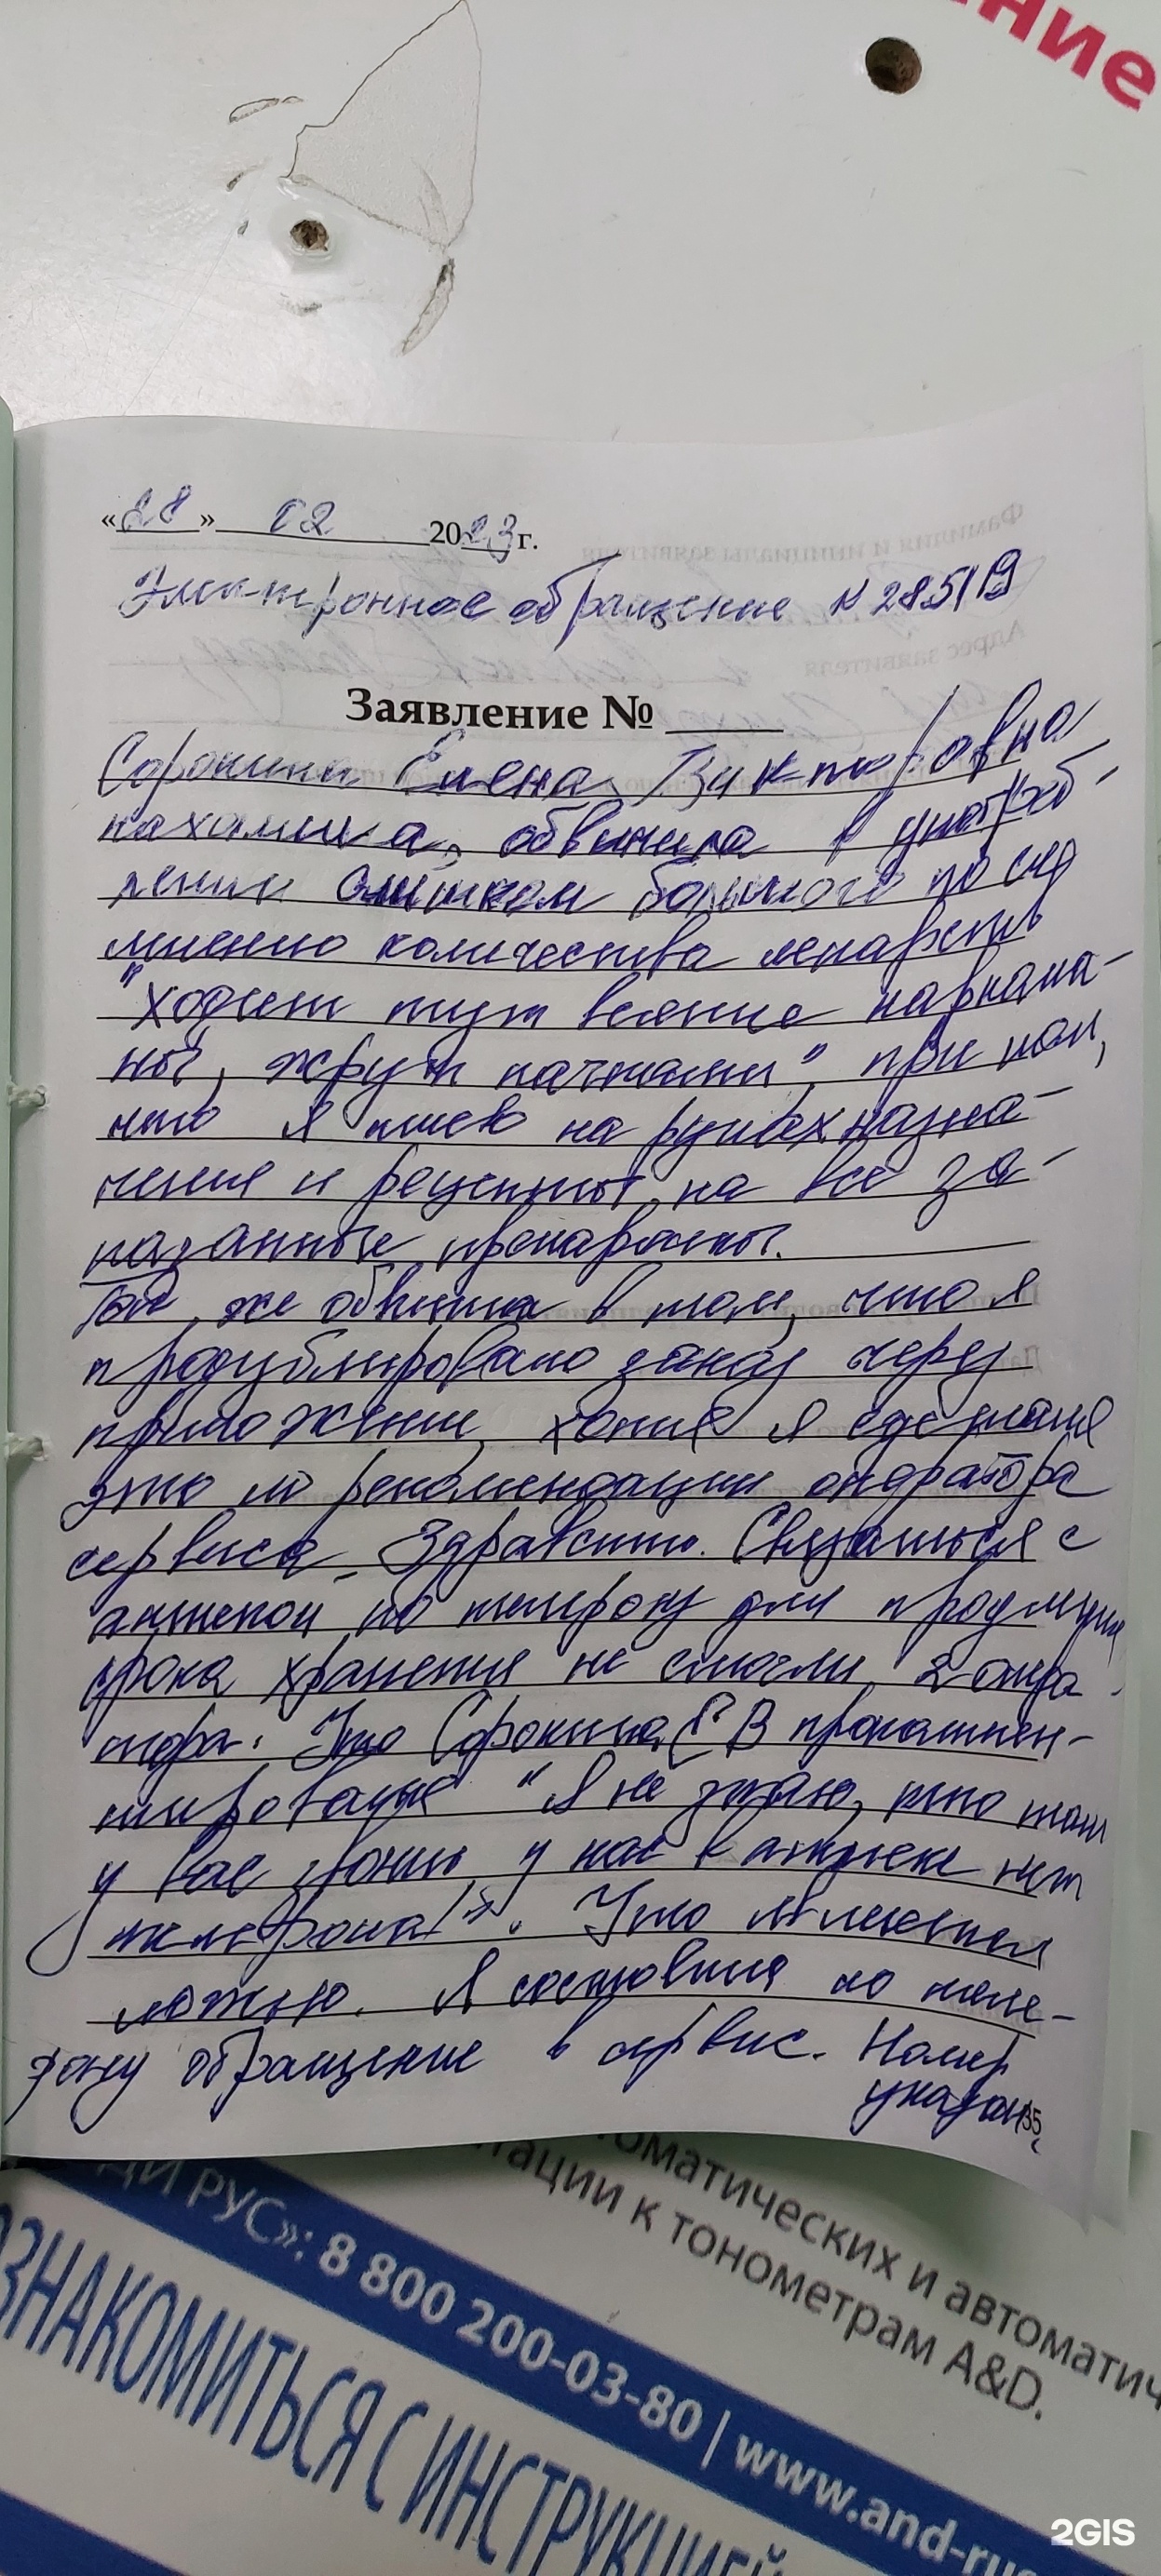 ние
«28» 02 2023 г.
Электронное обращение N 28519
Заявление №
Сорокина Елена Викторовна
нахамила, обвинила в употреб-
лении слишком большого по ее
мнению количества лекарств
"ходют тут всякие наркома-
ны, жрут пачками", при том,
что я имею на руках назна-
чения и рецепты на все за-
казанные препараты.
же обвинила в том, что я
продублировала заказ через
приложение, хотя я сделала
это по рекомендации оператора
сервиса Здравсити. Связаться с
аптекой по телефону для продления
срока хранения не смогли 2 опера
тора. Это Сорокина Е В прокоммен-
тировала "Я не знаю, кто там
у вас звонил, у нас в аптеке нет
телефона!". Это является
ложью. Я составила по теле-
фону обращение в сервис. Номер
указан
35
оматических и автоматич
тации к тонометрам A&D.
ДИ РУС»: 8 800 200-03-80 | www.and-rus
ОЗНАКОМИТЬСЯ С ИНСТРУКЦИЕЙ
2GIS